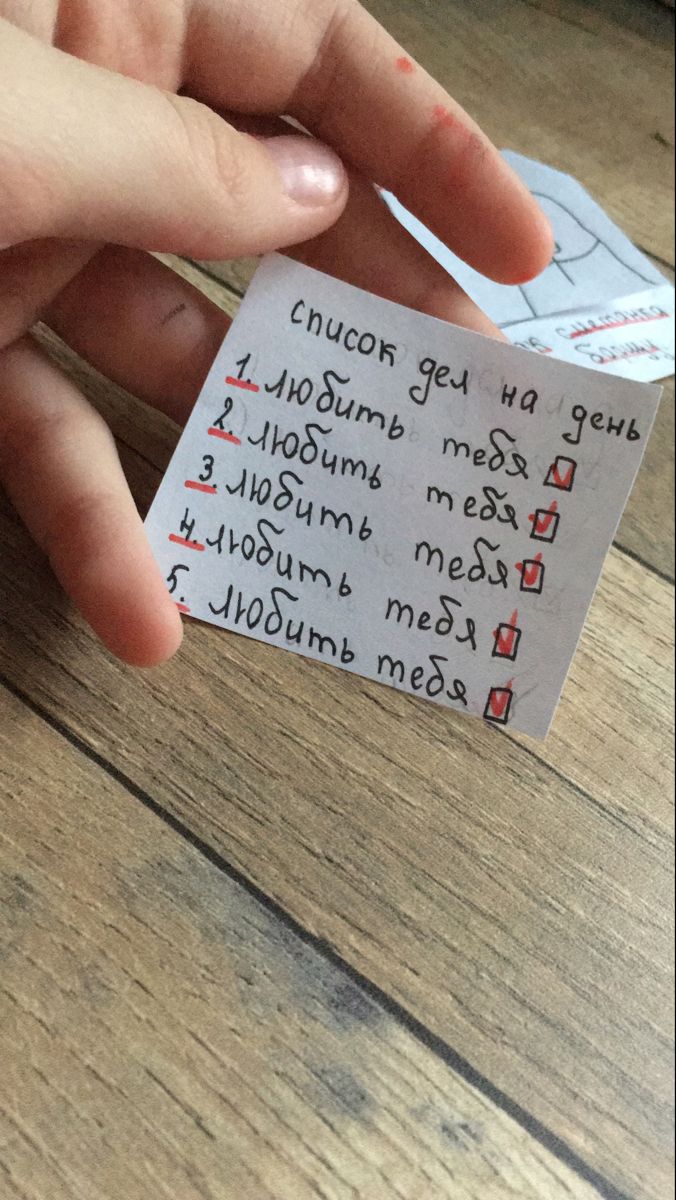 список дел на день
1. любить тебя
2. любить тебя
3. любить тебя
4. любить тебя
5. любить тебя
сметанка
борщу